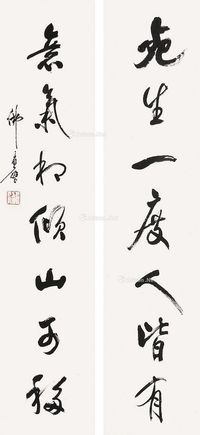 死生一度人皆有
意氣相傾山可移